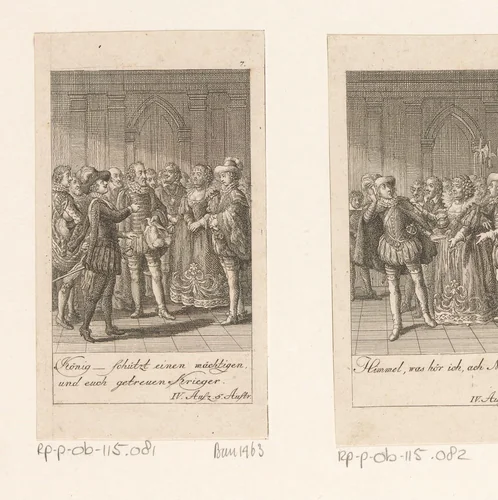 7.
König — schützt einen mächtigen,
und euch getreuen Krieger.
IV. Aufz 5. Auftr.
Himmel, was hör ich, ach
IV.
Rp-p-ob-115.081
Bau1963
Rp-p-ob-115.082